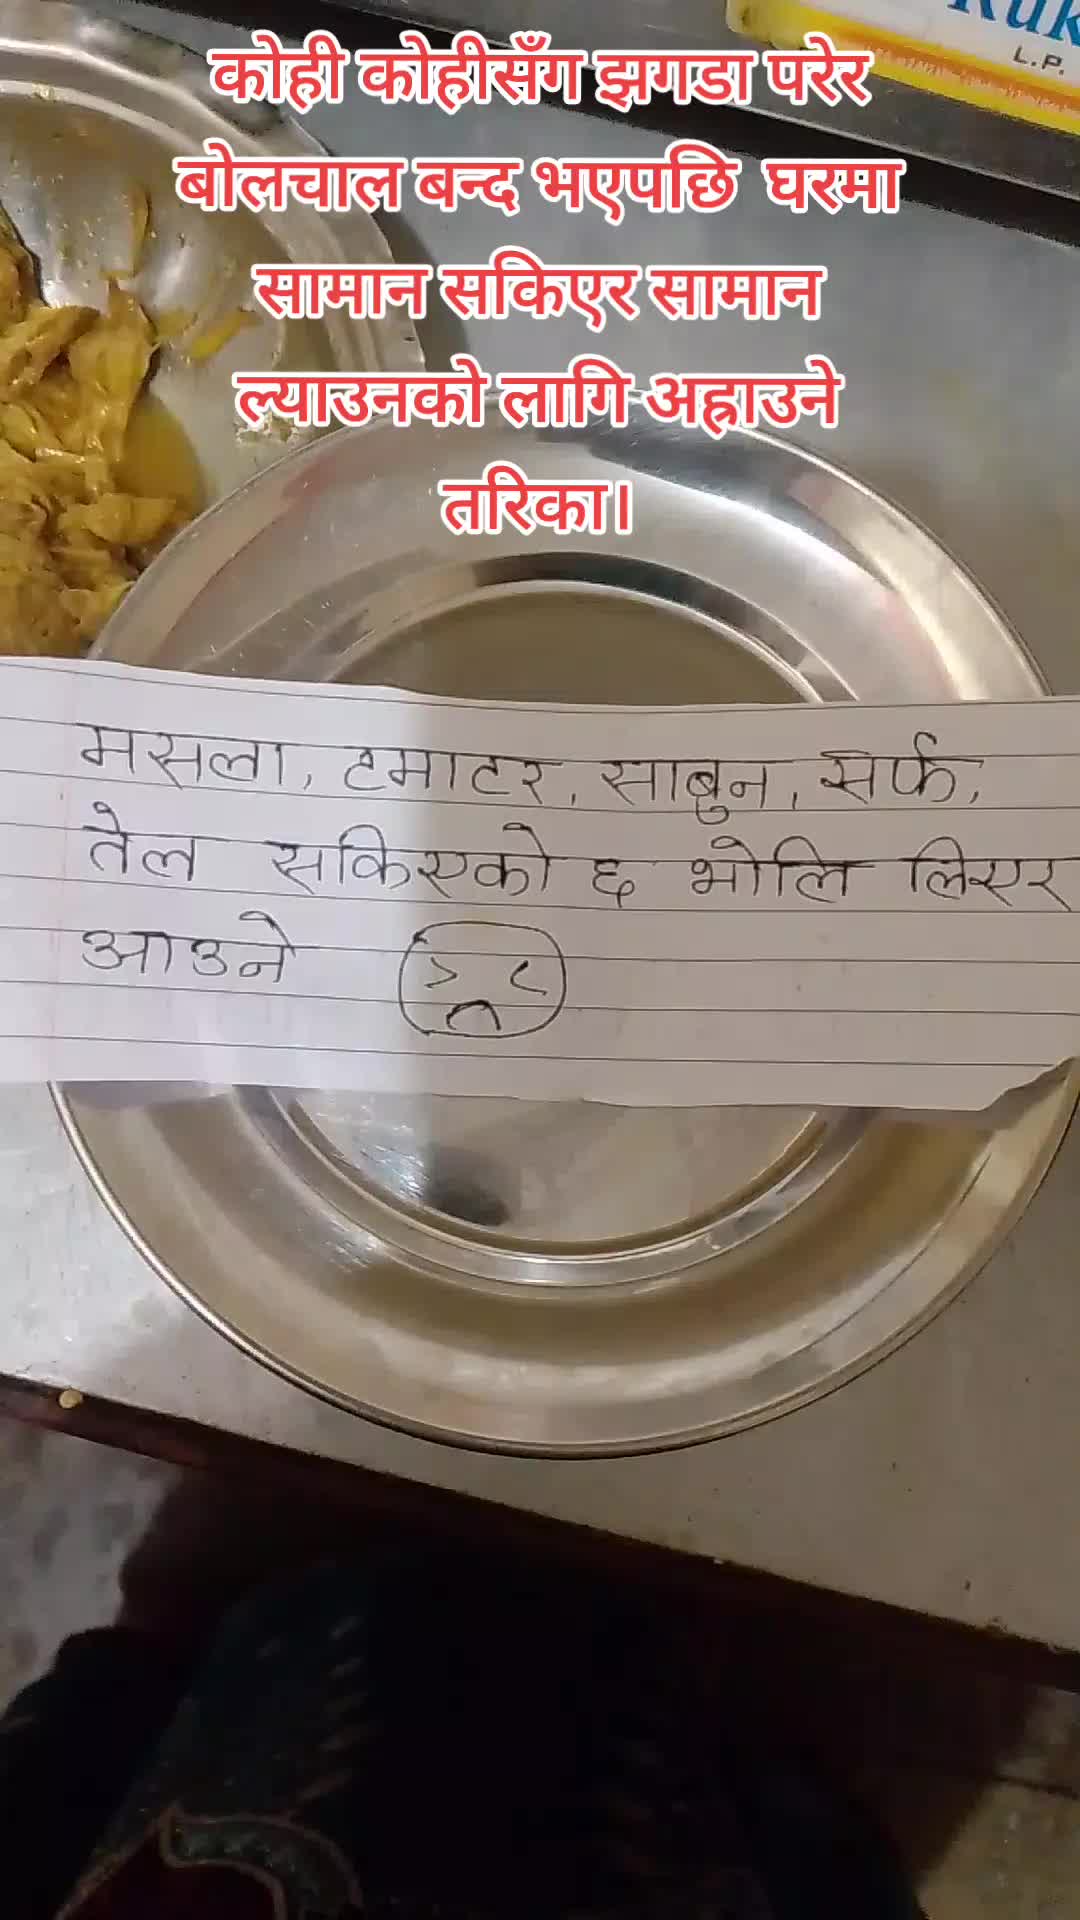 कोही कोहीसँग झगडा परेर
बोलचाल बन्द भएपछि घरमा
सामान सकिएर सामान
ल्याउनको लागि अह्राउने
तरिका।
L.P.
मसला, टमाटर, साबुन, सर्फ,
तेल सकिएको छ भोलि लिएर
आउने